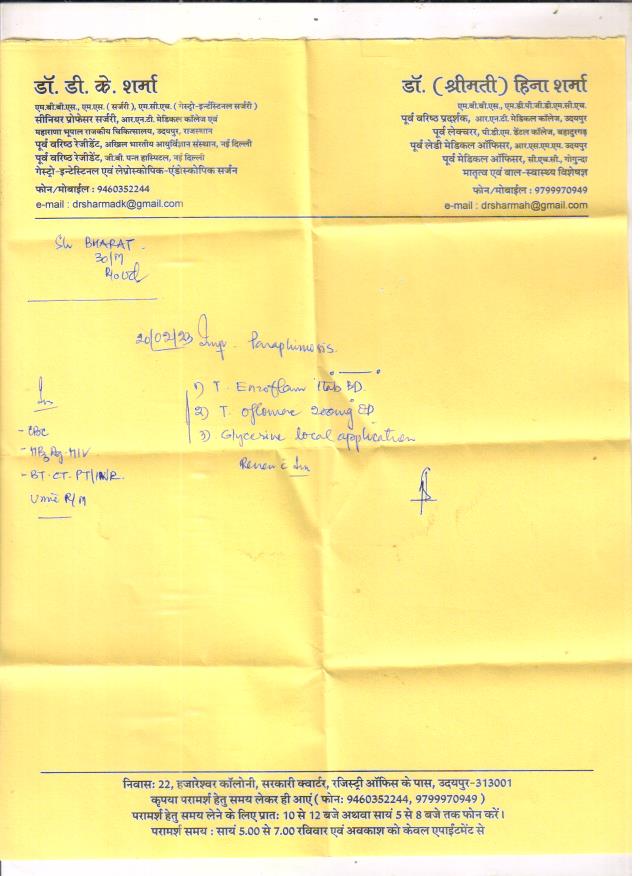 डॉ. डी. के. शर्मा
एम.बी.बी.एस., एम.एस. ( सर्जरी ), एम.सी.एच. ( गेस्ट्रो-इन्टेंस्टिनल सर्जरी )
सीनियर प्रोफेसर सर्जरी, आर.एन.टी. मेडिकल कॉलेज एवं
महाराणा भूपाल राजकीय चिकित्सालय, उदयपुर, राजस्थान
पूर्व वरिष्ठ रेजीडेंट, अखिल भारतीय आयुर्विज्ञान संस्थान, नई दिल्ली
पूर्व वरिष्ठ रेजीडेंट, जी.बी. पन्त हास्पिटल, नई दिल्ली
गेस्ट्रो-इन्टेस्टिनल एवं लेप्रोस्कोपिक-एंडोस्कोपिक सर्जन
फोन/मोबाईल : 9460352244
e-mail : drsharmadk@gmail.com
डॉ. (श्रीमती) हिना शर्मा
एम.बी.बी.एस., एम.डी.पी.जी.डी.एम.सी.एच.
पूर्व वरिष्ठ प्रदर्शक, आर.एन.टी. मेडिकल कॉलेज, उदयपुर
पूर्व लेक्चरर, पी.डी.एम. डेंटल कॉलेज, बहादुरगढ़
पूर्व लेडी मेडिकल ऑफिसर, आर.एस.एम.एम. उदयपुर
पूर्व मेडिकल ऑफिसर, सी.एच.सी., गोगुन्दा
मातृत्व एवं बाल-स्वास्थ्य विशेषज्ञ
फोन/मोबाईल : 9799970949
e-mail : drsharmah@gmail.com
BHARAT
30/M
20/02/23 Imp. Paraphimosis.
1) T. Enzoflam 1tab BD.
2) T. Oflomac 200mg BD
3) Glycerine local application
Review c Inv
Inv
- CBC
- HBsAg. HIV
- BT. CT. PT/INR.
Urine R/M
निवास: 22, हजारेश्वर कॉलोनी, सरकारी क्वार्टर, रजिस्ट्री ऑफिस के पास, उदयपुर-313001
कृपया परामर्श हेतु समय लेकर ही आएं ( फोन: 9460352244, 9799970949 )
परामर्श हेतु समय लेने के लिए प्रात: 10 से 12 बजे अथवा सायं 5 से 8 बजे तक फोन करें।
परामर्श समय : सायं 5.00 से 7.00 रविवार एवं अवकाश को केवल एपाईंटमेंट से